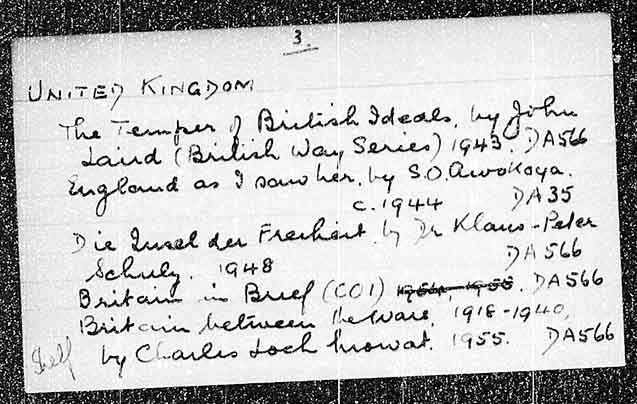 3.
UNITED KINGDOM
The Temper of British Ideals, by John
Laird (British Way Series) 1943. DA566
England as I saw her, by S.O. Awokoya.
c. 1944 DA35
Die Insel der Freiheit by Dr Klaus-Peter
Schulz. 1948 DA566
Britain in Brief (COI) DA566
Britain between the Wars, 1918-1940,
Shelf by Charles Loch Mowat. 1955. DA566